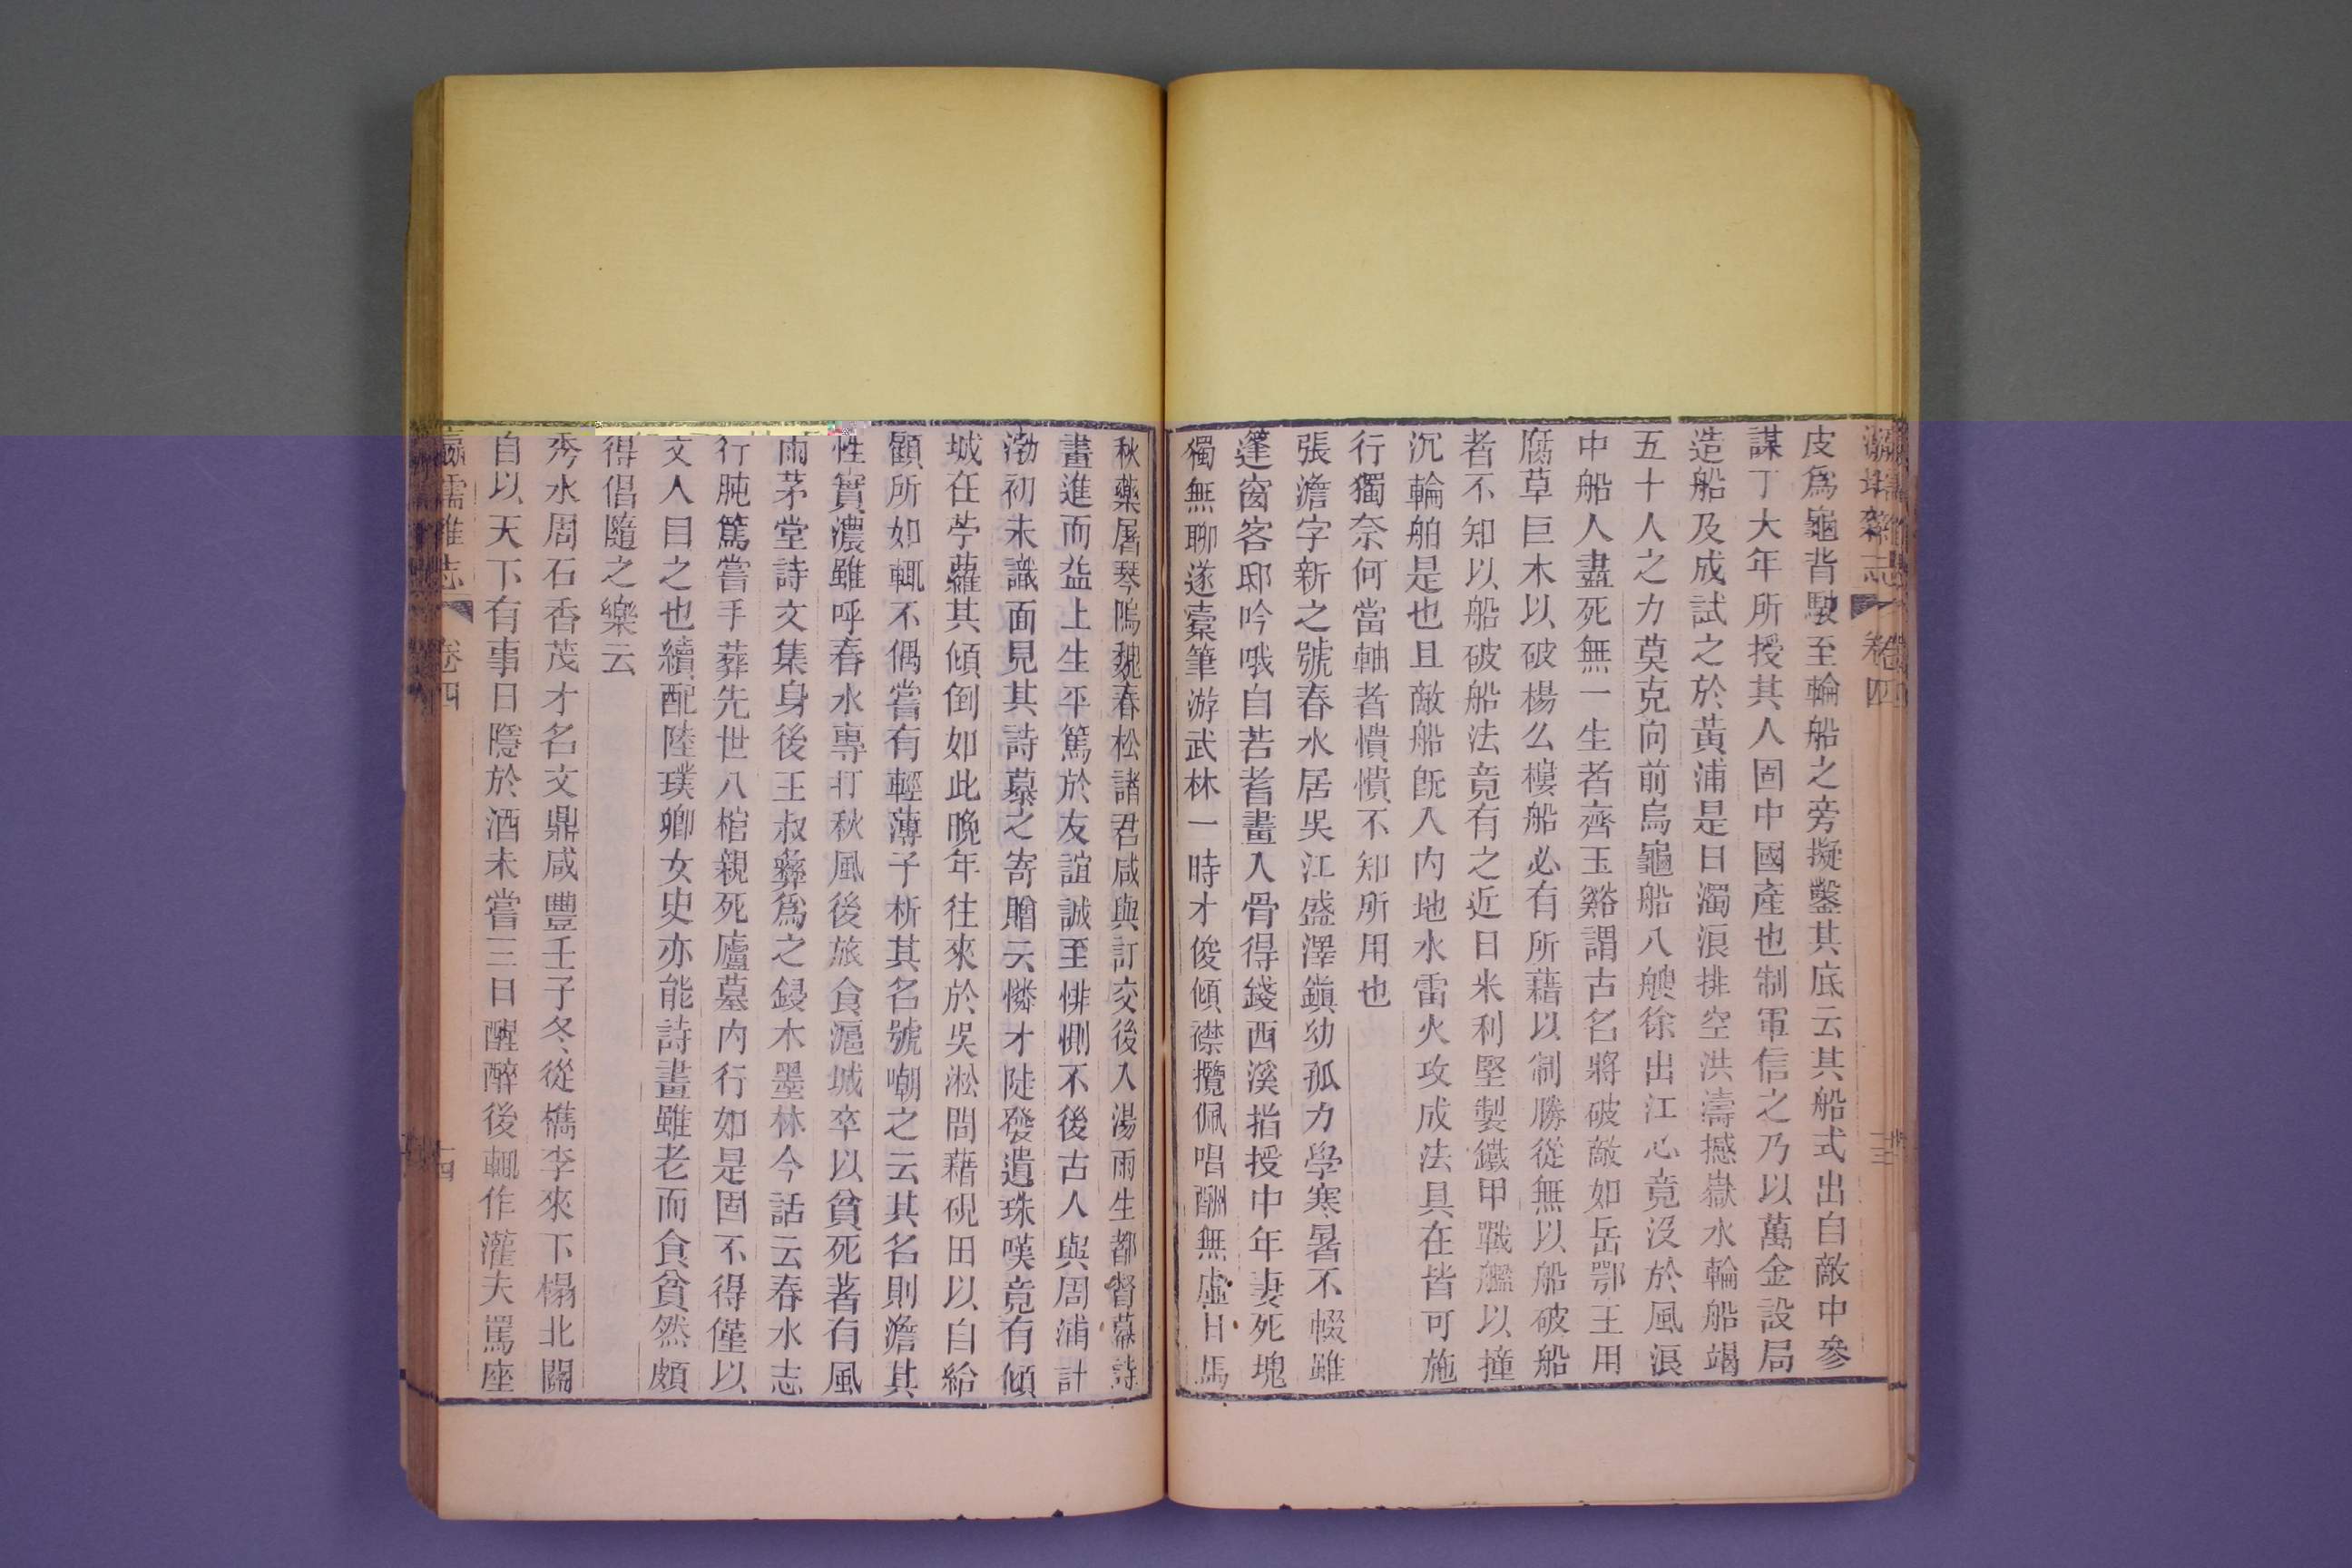 瀛壖雜志 卷四
皮爲龜背駛至輪船之旁擬鑿其底云其船式出自敵中參
謀丁大年所授其人固中國產也制軍信之乃以萬金設局
造船及成試之於黃浦是日濁浪排空洪濤撼嶽水輪船竭
五十人之力莫克向前烏龜船八艘徐出江心竟沒於風浪
中船人盡死無一生者齊玉谿謂古名將破敵如岳鄂王用
腐草巨木以破楊么樓船必有所藉以制勝從無以船破船
者不知以船破船法竟有之近日米利堅製鐵甲戰艦以撞
沉輪舶是也且敵船旣入內地水雷火攻成法具在皆可施
行獨奈何當軸者憒憒不知所用也
張澹字新之號春水居吳江盛澤鎭幼孤力學寒暑不輟雖
篷窗客邸吟哦自若耆畫入骨得錢西溪指授中年妻死塊
獨無聊遂橐筆游武林一時才俊傾襟攬佩唱酬無虛日馬
秋藥屠琴隖魏春松諸君咸與訂交後入湯雨生都督幕詩
畫進而益上生平篤於友誼誠至悱惻不後古人與周浦計
渤初未識面見其詩慕之寄贈云憐才陡發遺珠嘆竟有傾
城在苧蘿其傾倒如此晚年往來於吳淞間藉硯田以自給
顧所如輒不偶嘗有輕薄子析其名號嘲之云其名則澹其
性實濃雖呼春水專打秋風後旅食滬城卒以貧死著有風
雨茅堂詩文集身後王叔彝爲之鋟木墨林今話云春水志
行肫篤嘗手葬先世八棺親死廬墓內行如是固不得僅以
文人目之也續配陸璞卿女史亦能詩畫雖老而食貧然頗
得倡隨之樂云
秀水周石香茂才名文鼎咸豐壬子冬從檇李來下榻北關
自以天下有事日隱於酒未嘗三日醒醉後輒作灌夫罵座
瀛壖雜志 卷四